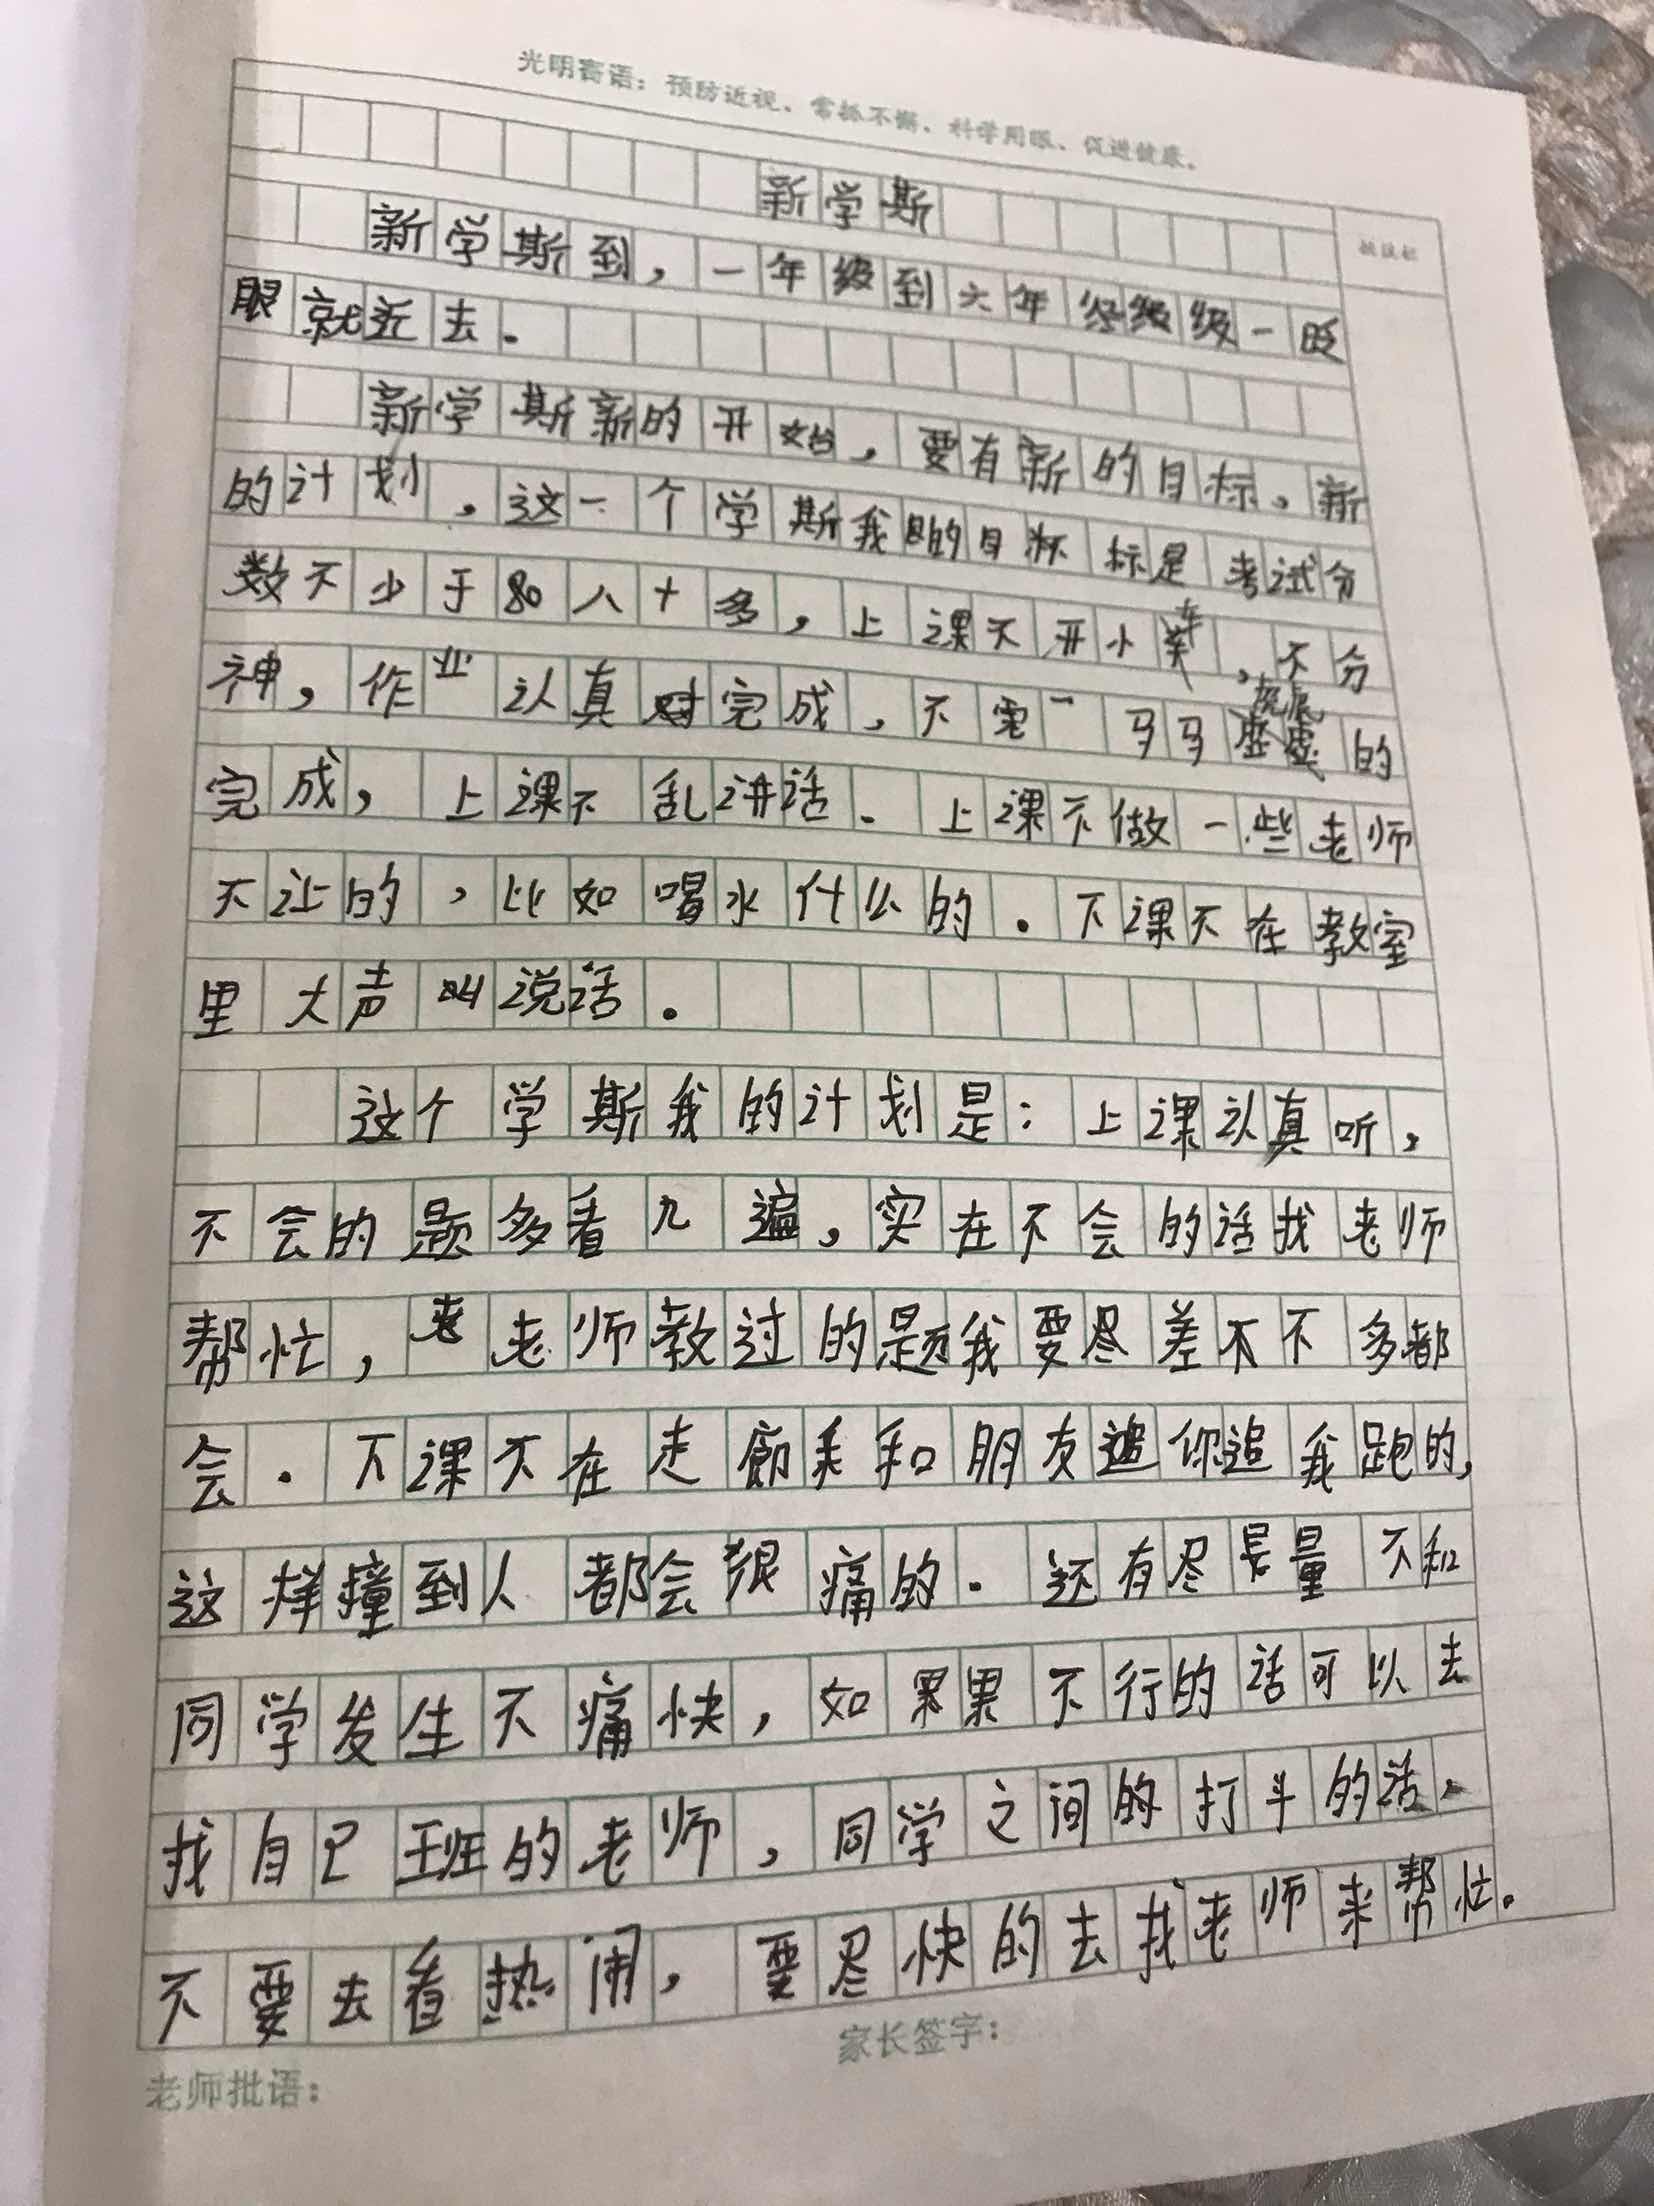 光明寄语：预防近视、常抓不懈、科学用眼、促进健康。
新学斯
新学斯到，一年级到六年级级一眨
眼就近去。
新学斯新的开始，要有新的目标，新
的计划，这一个学斯我的目标是考试分
数不少于80八十多，上课不开小车，不分
神，作业认真完成，不要一马马虎虎的
完成，上课不乱讲话、上课不做一些老师
不让的，比如喝水什么的。下课不在教室
里大声叫说话。
这个学斯我的计划是：上课认真听，
不会的题多看几遍，实在不会的话找老师
帮忙，老老师教过的题我要尽差不不多都
会。下课不在走廊和朋友追你追我跑的，
这样撞到人都会很痛的。还有尽量不和
同学发生不痛快，如果果不行的话可以去
找自己班的老师，同学之间的打斗的话、
不要去看热闹，要尽快的去找老师来帮忙。
老师批语：
家长签字：